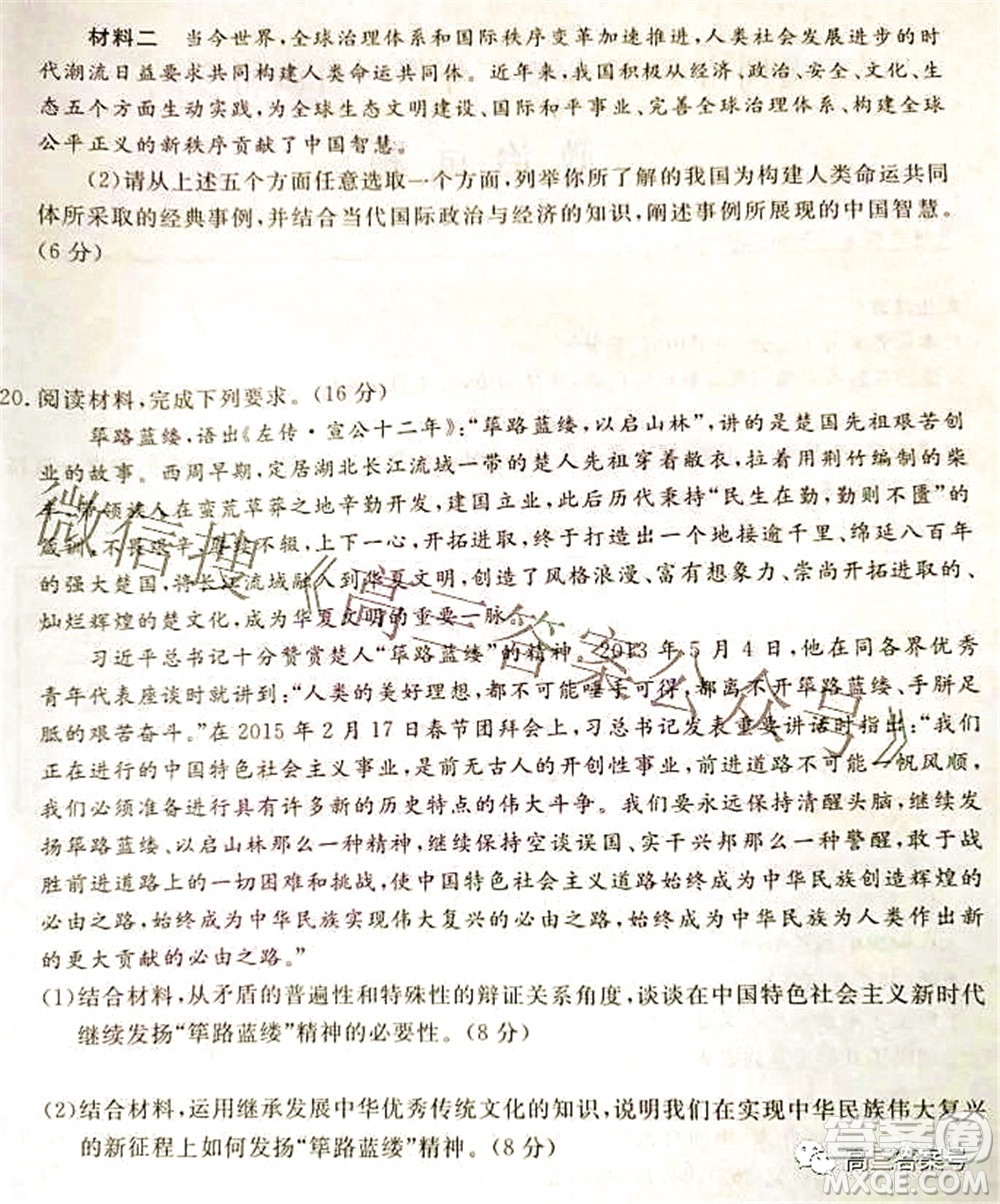 材料二　当今世界,全球治理体系和国际秩序变革加速推进,人类社会发展进步的时
代潮流日益要求共同构建人类命运共同体。近年来,我国积极从经济、政治、安全、文化、生
态五个方面生动实践,为全球生态文明建设、国际和平事业、完善全球治理体系、构建全球
公平正义的新秩序贡献了中国智慧。
(2)请从上述五个方面任意选取一个方面,列举你所了解的我国为构建人类命运共同
体所采取的经典事例,并结合当代国际政治与经济的知识,阐述事例所展现的中国智慧。
(6分)
20.阅读材料,完成下列要求。(16分)
筚路蓝缕,语出《左传·宣公十二年》:“筚路蓝缕,以启山林”,讲的是楚国先祖艰苦创
业的故事。西周早期,定居湖北长江流域一带的楚人先祖穿着敝衣,拉着用荆竹编制的柴
领族人在蛮荒草莽之地辛勤开发,建国立业,此后历代秉持“民生在勤,勤则不匮”的
不畏艰辛 不辍,上下一心,开拓进取,终于打造出一个地接逾千里、绵延八百年
的强大楚国,将长江流域融入到华夏文明,创造了风格浪漫、富有想象力、崇尚开拓进取的、
灿烂辉煌的楚文化,成为华夏文明的重要一脉。
习近平总书记十分赞赏楚人“筚路蓝缕”的精神。2013年5月4日,他在同各界优秀
青年代表座谈时就讲到:“人类的美好理想,都不可能唾手可得,都离不开筚路蓝缕、手胼足
胝的艰苦奋斗。”在2015年2月17日春节团拜会上,习总书记发表重要讲话时指出:“我们
正在进行的中国特色社会主义事业,是前无古人的开创性事业,前进道路不可能一帆风顺,
我们必须准备进行具有许多新的历史特点的伟大斗争。我们要永远保持清醒头脑,继续发
扬筚路蓝缕、以启山林那么一种精神,继续保持空谈误国、实干兴邦那么一种警醒,敢于战
胜前进道路上的一切困难和挑战,使中国特色社会主义道路始终成为中华民族创造辉煌的
必由之路,始终成为中华民族实现伟大复兴的必由之路,始终成为中华民族为人类作出新
的更大贡献的必由之路。”
(1)结合材料,从矛盾的普遍性和特殊性的辩证关系角度,谈谈在中国特色社会主义新时代
继续发扬“筚路蓝缕”精神的必要性。(8分)
(2)结合材料,运用继承发展中华优秀传统文化的知识,说明我们在实现中华民族伟大复兴
的新征程上如何发扬“筚路蓝缕”精神。(8分)
微信搜《高三答案公众号》
高三答案号
答案圈
MXQE.COM